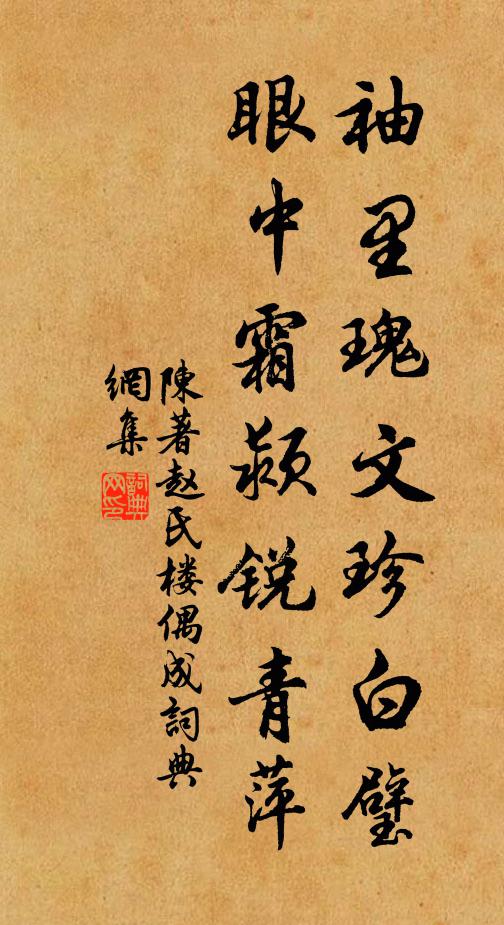 袖里瑰文珍白璧
眼中霜颍锐青萍
陳著赵氏楼偶成詞典
網集
詞典网印